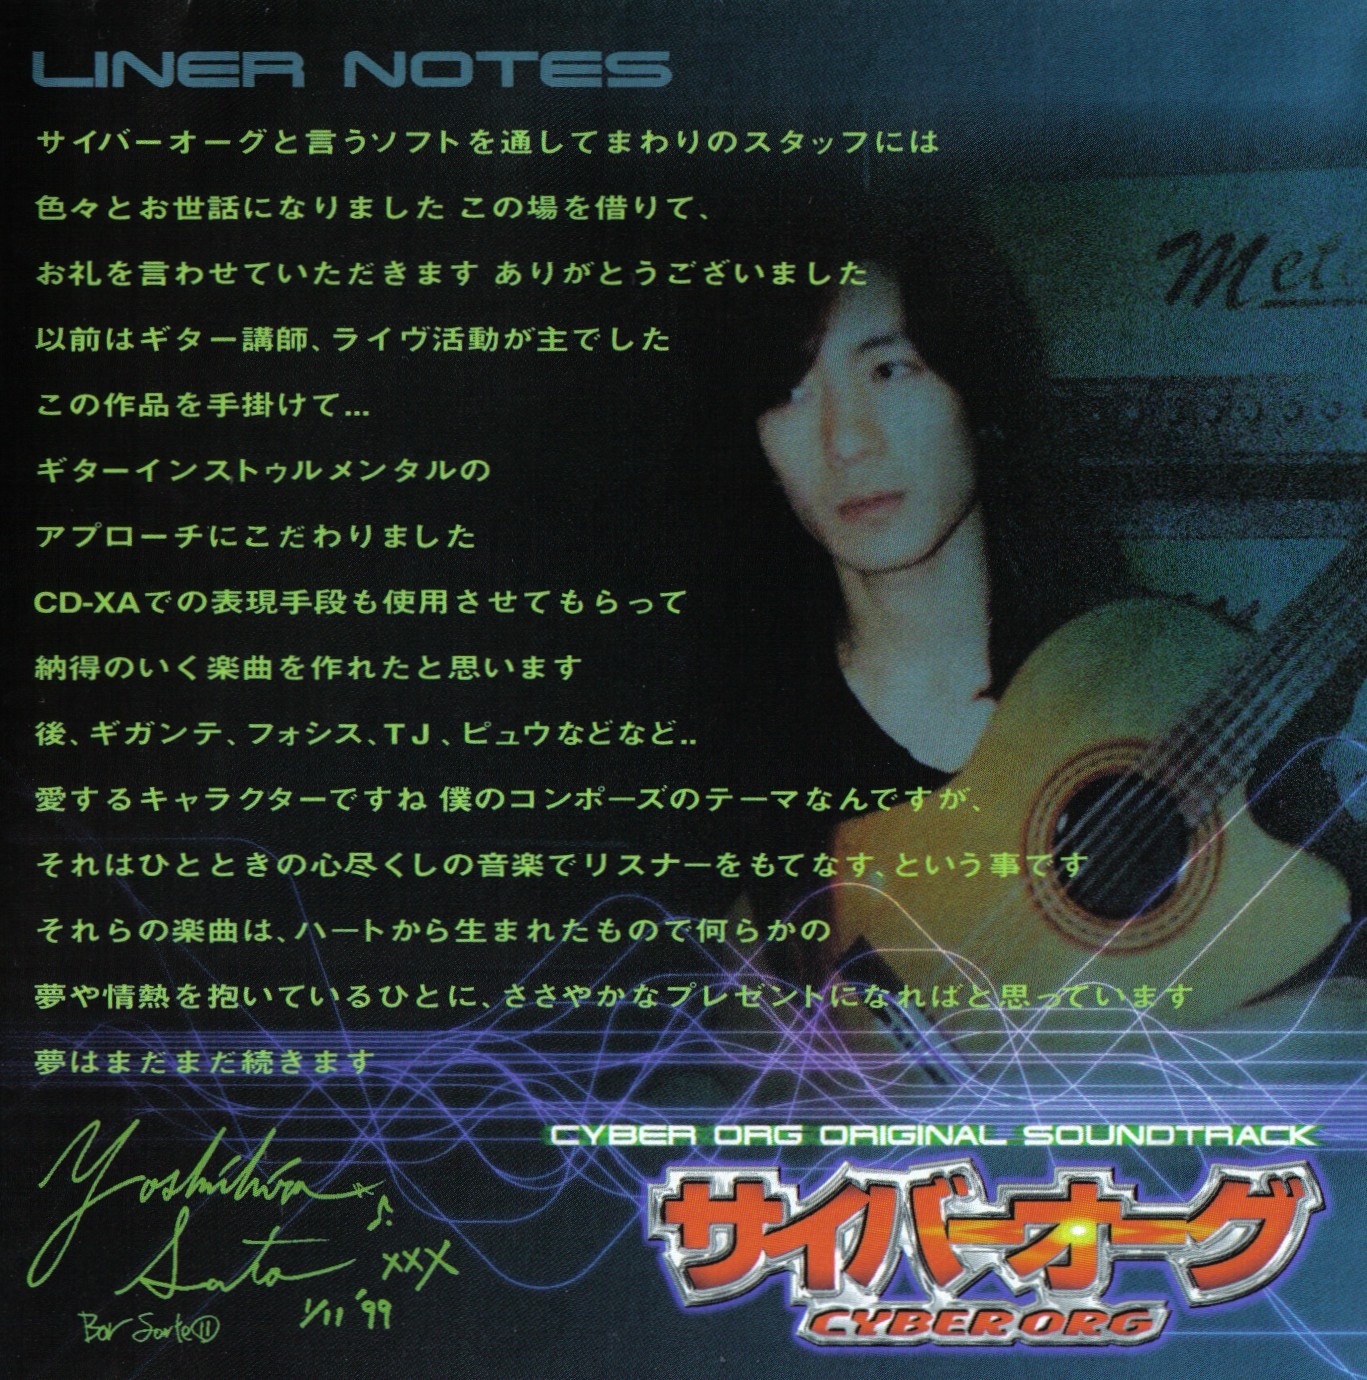 LINER NOTES
サイバーオーグと言うソフトを通してまわりのスタッフには
色々とお世話になりました この場を借りて、
お礼を言わせていただきます ありがとうございました
以前はギター講師、ライヴ活動が主でした
この作品を手掛けて...
ギターインストゥルメンタルの
アプローチにこだわりました
CD-XAでの表現手段も使用させてもらって
納得のいく楽曲を作れたと思います
後、ギガンテ、フォシス、TJ、ピュウなどなど..
愛するキャラクターですね 僕のコンポーズのテーマなんですが、
それはひとときの心尽くしの音楽でリスナーをもてなす、という事です
それらの楽曲は、ハートから生まれたもので何らかの
夢や情熱を抱いているひとに、ささやかなプレゼントになればと思っています
夢はまだまだ続きます
Met
Yoshihiro
Sato xxx
1/11 '99
CYBER ORG ORIGINAL SOUNDTRACK
サイバーオーグ
CYBER ORG